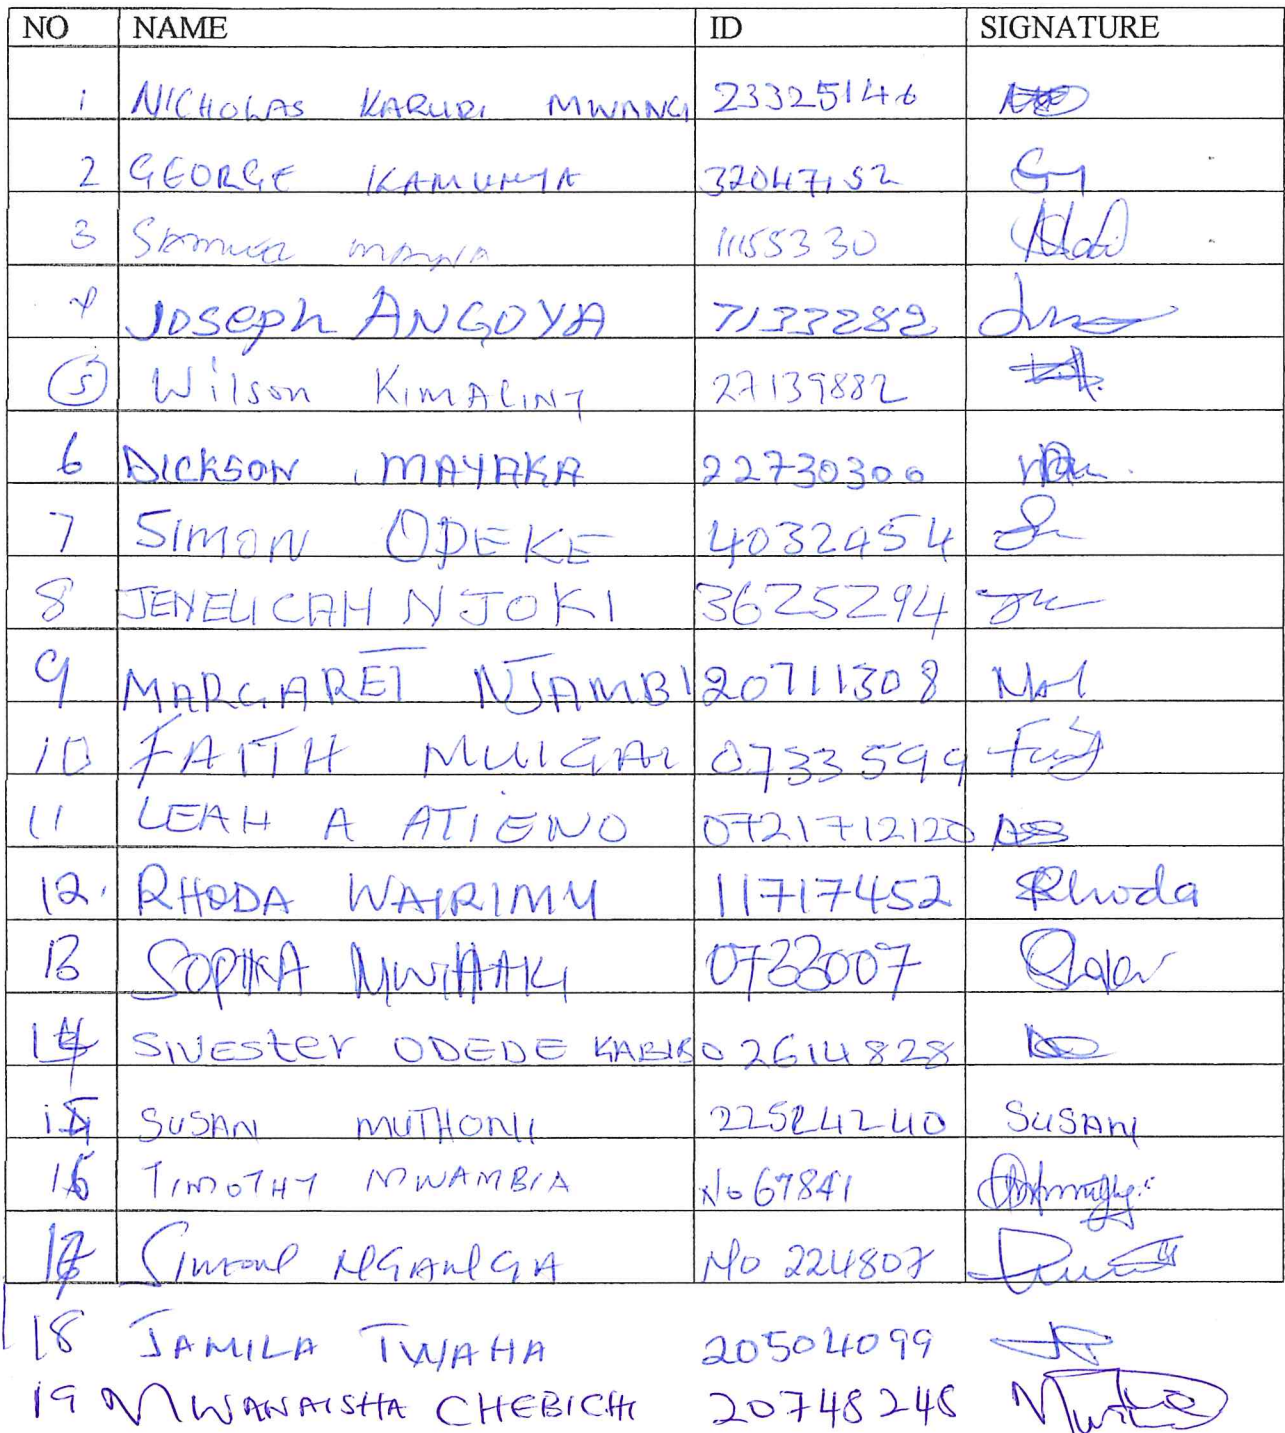 NO NAME ID SIGNATURE
1 NICHOLAS KARURI MWANGI 23325146
2 GEORGE KAMUNYA 32047152
3 SAMUEL MAINA 11155330
4 JOSEPh ANGOYA 71333282
5 Wilson KIMALINY 27139882
6 DICKSON MAYAKA 22730300
7 SIMON ODEKE 40324454
8 JENELICAH NJOKI 36252294
9 MARGARET NJAMBI 20711308
10 FAITH MUIGAI 0733599
11 LEAH A ATIENO 0721712120
12. RHODA WAIRIMU 11717452 Rhoda
13 SOPHIA MWIHAKI 0733007
14 SIVESter ODEDE KABIRO 2614828
15 SUSAN MUTHONI 22524240 SUSAN
16 TIMOTHY MWAMBIA No 67841
17 SIMEON NGANGA No 224807
18 JAMILA TWAHA 20504099
19 MWANAISHA CHEBICHI 20748248